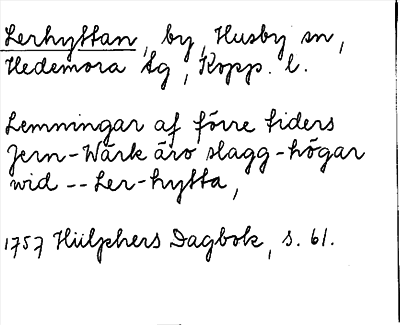 Lerhyttan, by, Husby sn,
Hedemora tg, Kopp. l.
Lemningar af förre tiders
Jern-Wärk äro slagg-högar
wid -- Ler-hytta,
1757 Hülphers Dagbok, s. 61.